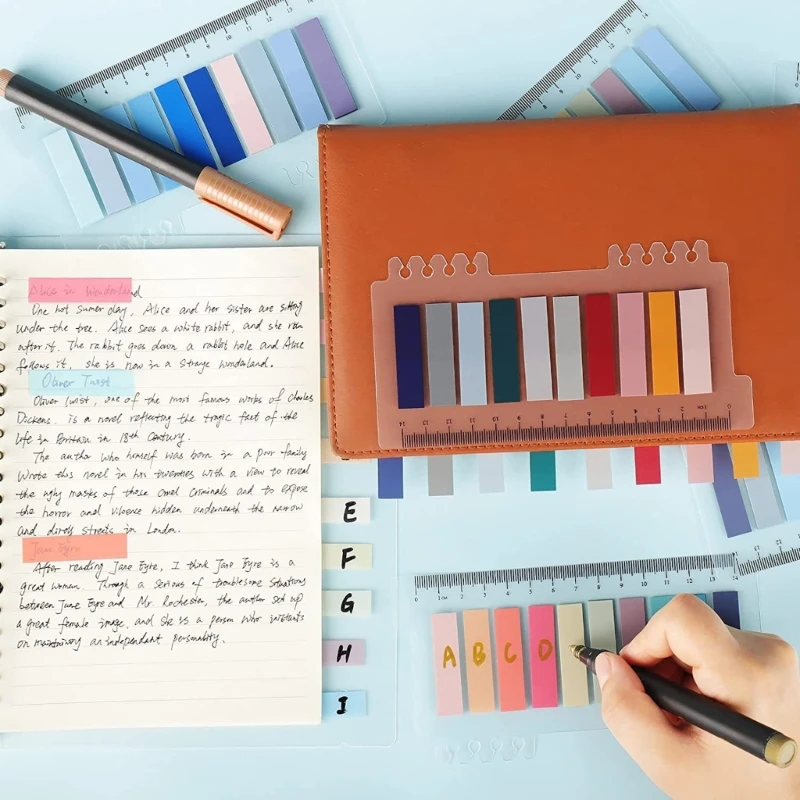 Alice in Wonderland
One hot sumer day, Alice and her sister are sitting
under the tree. Alice sees a white rabbit, and she run
after it. The rabbit goes down a rabbit hole and Alice
follows it, she is now in a strange wonderland.
Oliver Twist
Oliver Twist, one of the most famous works of Charles
Dickens. is a novel reflecting the tragic fact of the
life in Britain in 18th Century.
The author who himself was born in a poor family
Wrote this novel in his twenties with a view to reveal
the ugly masks of those cruel criminals and to expose
the horror and vilolence hidden underneath the narrow
and streets in London.
Jane Eyre
After reading Jane Eyre, I think Jane Eyre is a
great woman. Through a serious of troublesome situations
between Jane Eyre and Mr. Rochester, the author set up
a great female image, and she is a person who
on an independant personality.
E
F
G
H
I
A B C D